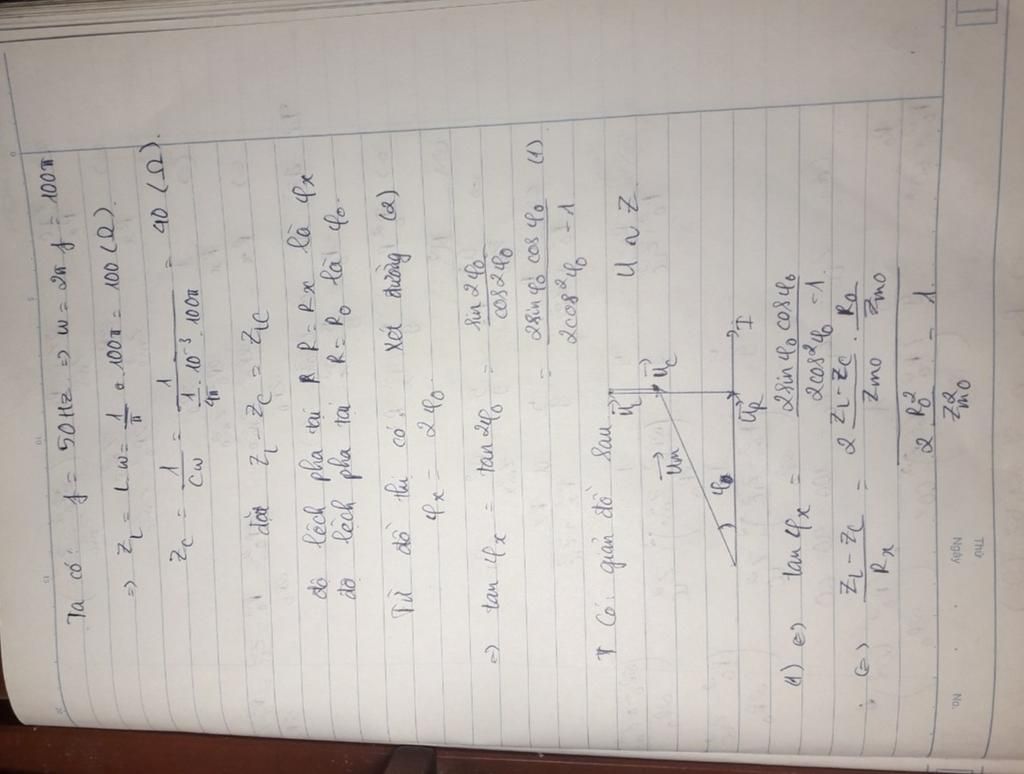 Ta có: f = 50Hz => w = 2π f = 100π
=> Z_L = L w = 1/π . 100π = 100 (Ω).
Z_C = 1/(Cw) = 1/(1/4π . 10^-3 . 100π) = 40 (Ω).
đặt Z_L - Z_C = Z_LC
độ lệch pha tại R = Rx là φx
độ lệch pha tại R = R_0 là φ_0.
Từ đồ thị có: Xét đường (2)
φx = 2φ_0.
=> tan φx = tan 2φ_0 = sin 2φ_0 / cos 2φ_0
= 2sin φ_0 cos φ_0 / (2cos²φ_0 - 1) (1)
Có: giản đồ sau U ~ Z
U_L
U_m
U_C
φ_0
U_R
I
(1) <=> tan φx = 2sin φ_0 cos φ_0 / (2cos²φ_0 - 1).
<=> (Z_L - Z_C)/R_x = (2 (Z_L - Z_C)/Z_m0 . R_0/Z_m0) / (2 R_0²/Z²_m0 - 1)
Thứ
Ngày
No.